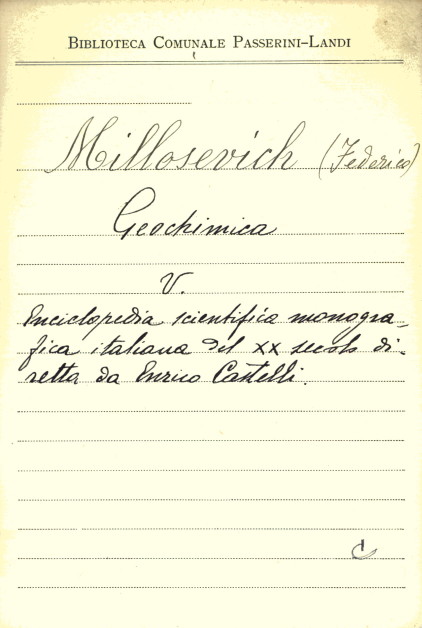 BIBLIOTECA COMUNALE PASSERINI-LANDI
Millosevich (Federico)
Geochimica
V.
Enciclopedia scientifica monogra-
fica italiana del XX secolo di-
retta da Enrico Castelli.